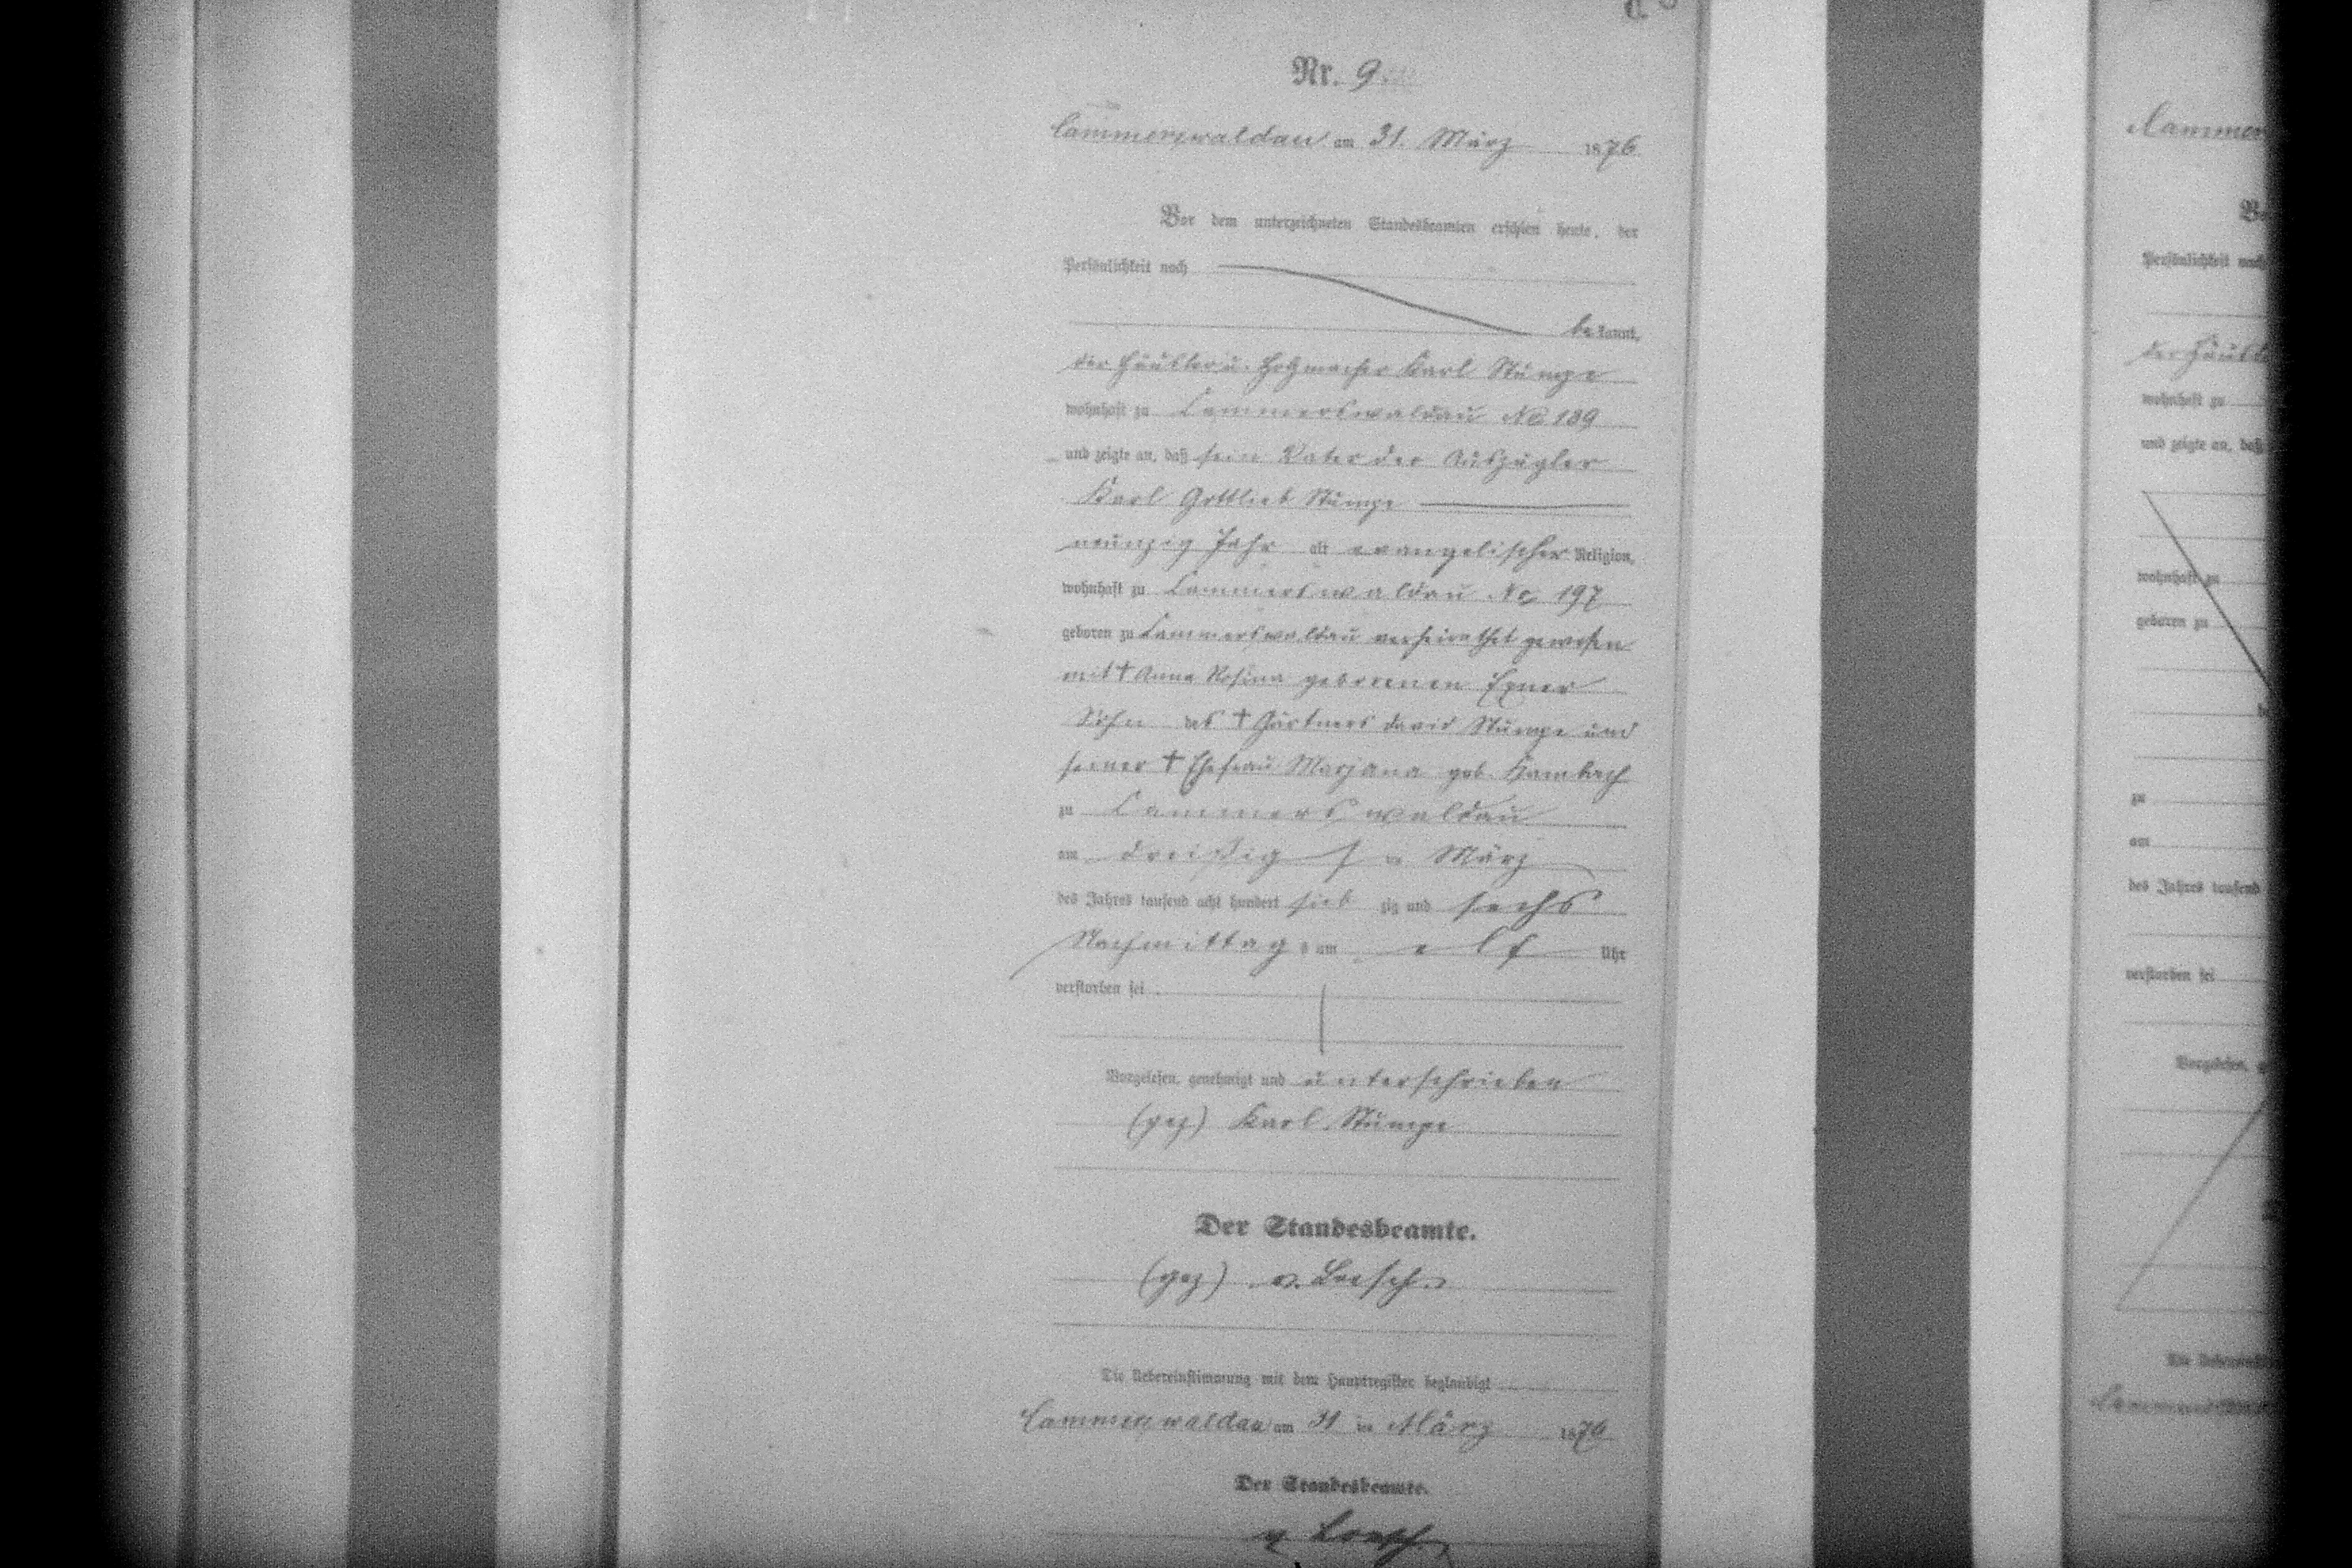 C.
Nr. 9
Cammerswaldau am 31. März 1876
Vor dem unterzeichneten Standesbeamten erschien heute, der
Persönlichkeit nach
bekannt,
der Häusler u. Karl Stumpe
wohnhaft zu Cammerswaldau No 189
und zeigte an, daß sein Vater der Auszügler
Karl Gottlieb Stumpe
neunzig Jahr alt evangelischer Religion,
wohnhaft zu Cammerswaldau No 197
geboren zu Cammerswaldau verheirathet gewesen
mit † Anna Rosina geborenen Exner
Sohn des † Gärtners David Stumpe und
seiner † Ehefrau Marjana geb. Hambach
zu Cammerswaldau
am dreißigsten März
des Jahres tausend acht hundert siebzig und sechs
Nachmittags um elf Uhr
verstorben sei
Vorgelesen, genehmigt und unterschrieben
(gez) Karl Stumpe
Der Standesbeamte.
(gez) v. Loesch
Die Uebereinstimmung mit dem Hauptregister beglaubigt
Cammerswaldau am 31 ten März 1876
Der Standesbeamte.
v Loesch
Cammer
Persönlichkeit nach
der Häusl
wohnhaft zu
und zeigte an, daß
wohnhaft zu
geboren zu
zu
am
des Jahres tausend
verstorben sei
Vorgelesen, g